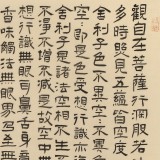 觀自在菩薩行深般若
多時照見五蘊皆空度
舍利子色不異空空不
空即是色受想行識亦
舍利子是諸法空相不生
不淨不增不減是故空中
想行識無眼耳鼻舌身
香味觸法無眼界乃至無